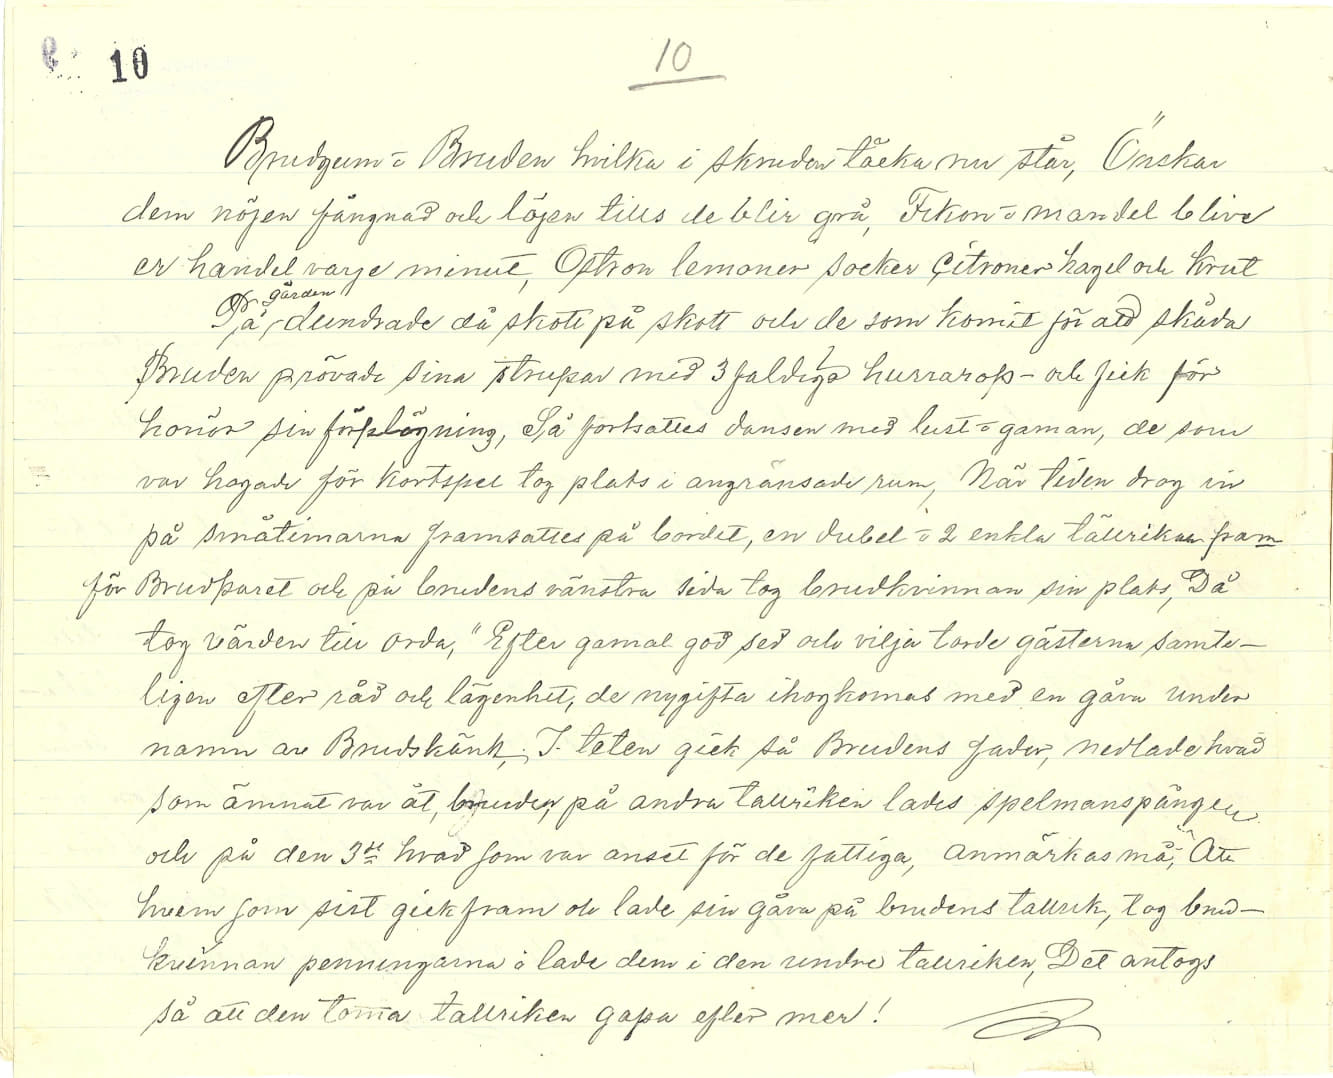 10
10
Brudgum o Bruden hvilka i skruden täcka nu står, Önskar
dem nöjen fängnad och löjen tills de blir grå, Fikon o mandel blive
er handel varje minut, Ostron lemoner socker Citroner hagel och krut
På gården dundrade då skott på skott och de som komit för att skåda
Bruden prövade sina strupar med 3 faldiga hurrarop – och fick för
honör sin förplägning, Så fortsattes dansen med lust o gaman, de som
var hogade för kortspel tog plats i angränsade rum, När tiden drog in
på småtimarna framsattes på bordet, en dubel o 2 enkla tallrikar fram
för Brudparet och på brudens vänstra sida tog brudkvinnan sin plats, Då
tog värden till orda, "Efter gamal god sed och vilja torde gästerna samte-
ligen efter råd och lägenhet, de nygifta ihogkomas med en gåva under
namn av Brudskänk, I teten gick så Brudens fader, nedlade hvad
som ämnat var åt, bruden, på andra tallriken lades spelmanspängen
och på den 3de hvad som var anset för de fattiga, anmärkas må, Att
hvem som sist gick fram och lade sin gåva på brudens tallrik, tog brud-
kvinnan penningarna o lade dem i den undre tallriken, Det antogs
så att den toma tallriken gapa efter mer!